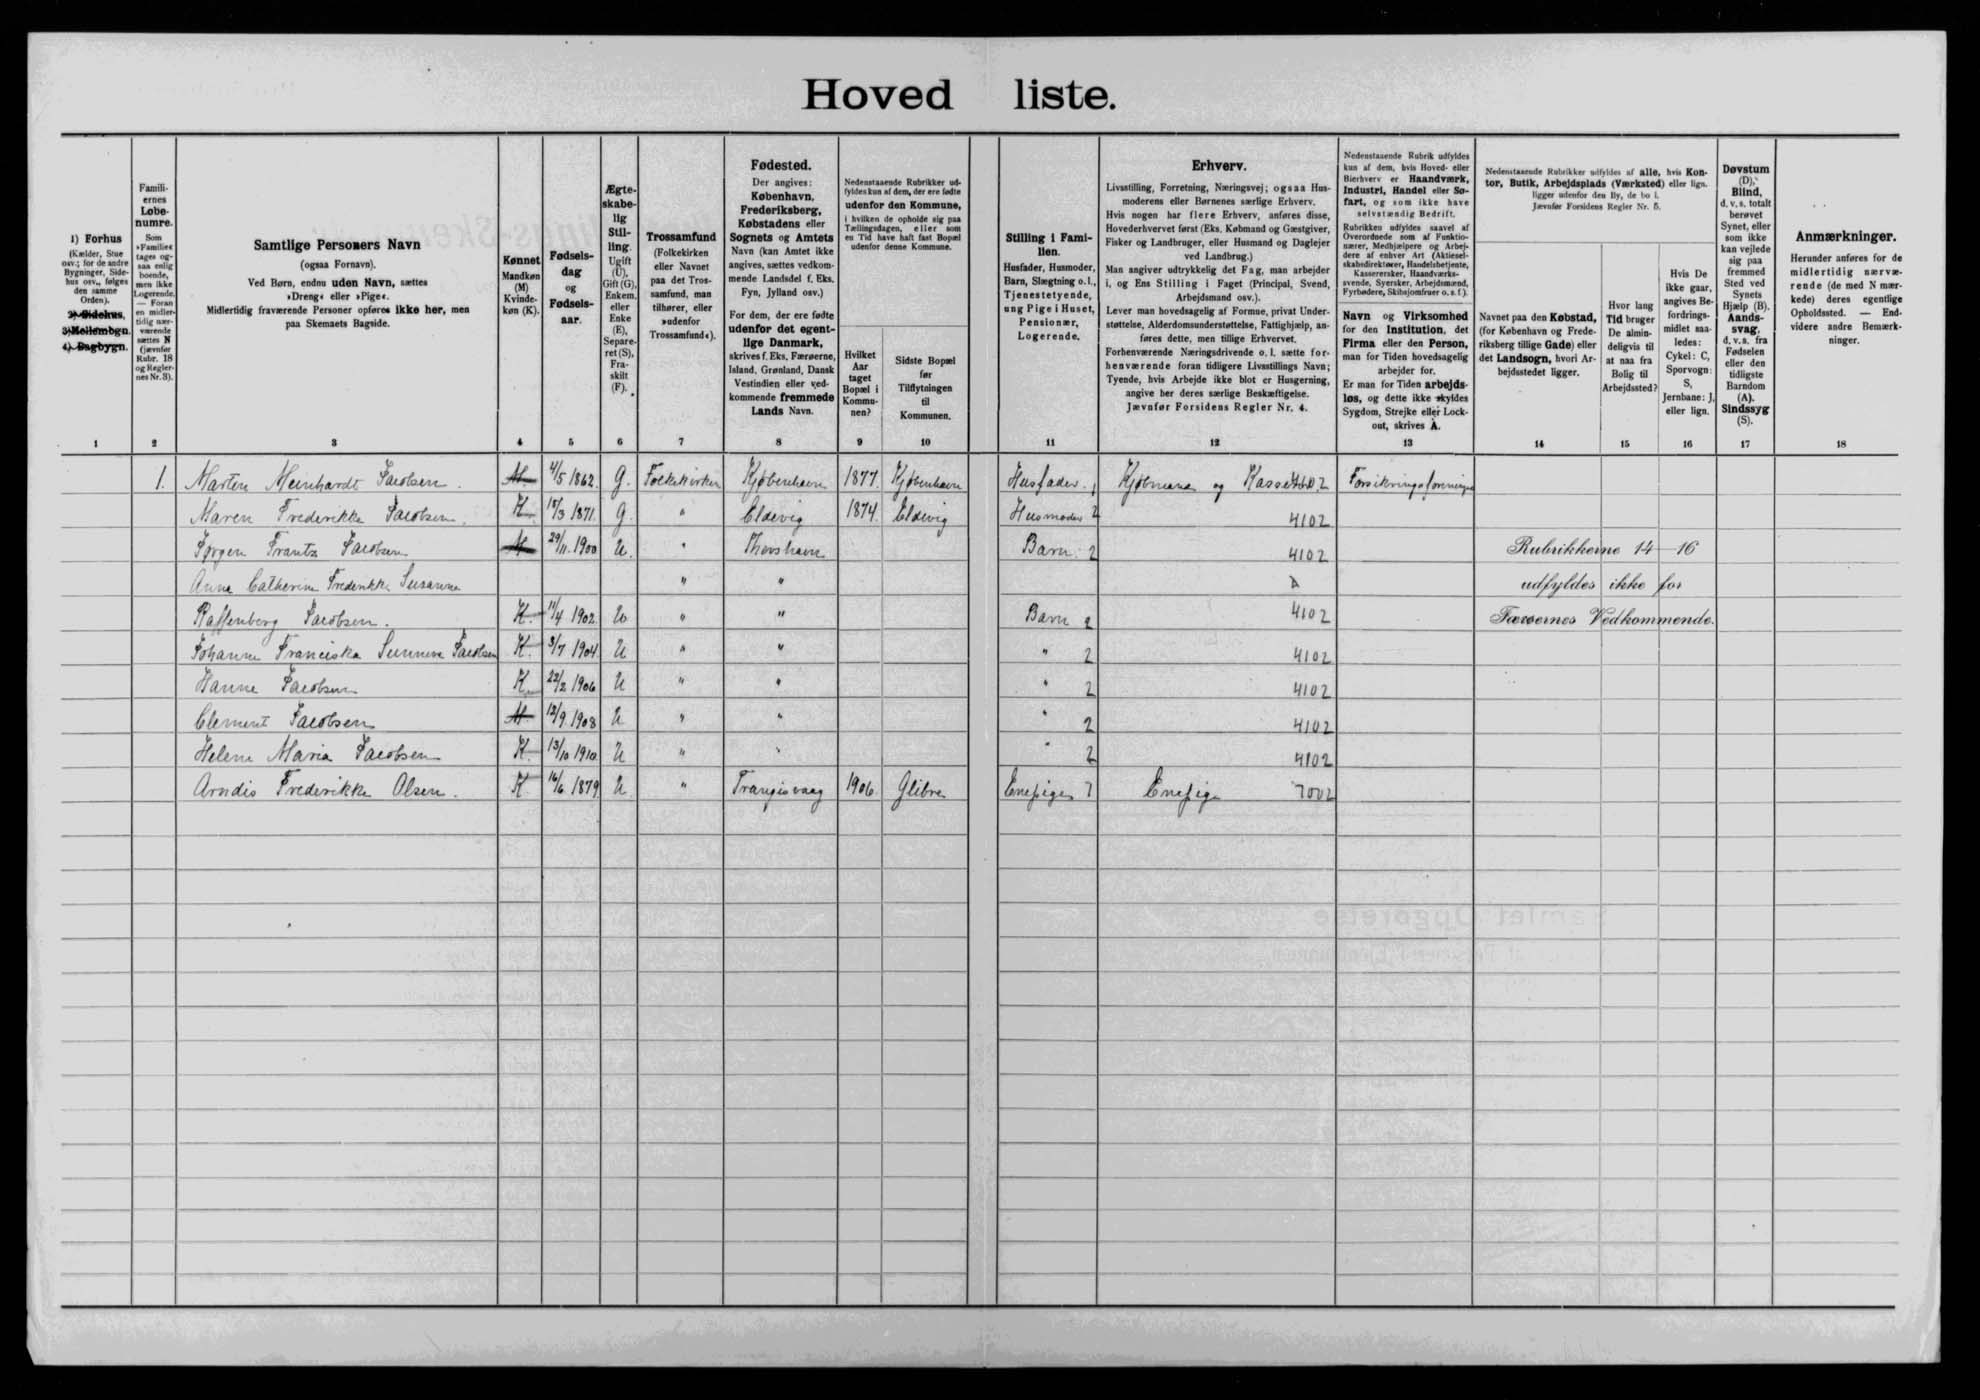 Hoved liste.
1) Forhus
(Kælder, Stue
osv.; for de andre
Bygninger, Side-
hus osv., følges
den samme
Orden).
2) Sidehus,
3) Mellembgn.
4) Bagbygn.
1
Famili-
ernes
Løbe-
numre.
Som
»Familie«
tages og-
saa enlig
boende,
men ikke
Logerende.
— Foran
en midler-
tidig nær-
værende
sættes N
(jævnfør
Rubr. 18
og Regler-
nes Nr. 3).
2
Samtlige Personers Navn
(ogsaa Fornavn).
Ved Børn, endnu uden Navn, sættes
»Dreng« eller »Pige«.
Midlertidig fraværende Personer opføres ikke her, men
paa Skemaets Bagside.
3
Kønnet
Mandkøn
(M)
Kvinde-
køn (K).
4
Fødsels-
dag
og
Fødsels-
aar.
5
Ægte-
skabe-
lig
Stil-
ling.
Ugift
(U),
Gift (G),
Enkem.
eller
Enke
(E),
Separe-
ret (S),
Fra-
skilt
(F).
6
Trossamfund
(Folkekirken
eller Navnet
paa det Tros-
samfund, man
tilhører, eller
»udenfor
Trossamfund«).
7
Fødested.
Der angives:
København,
Frederiksberg,
Købstadens eller
Sognets og Amtets
Navn (kan Amtet ikke
angives, sættes vedkom-
mende Landsdel f. Eks.
Fyn, Jylland osv.)
For dem, der ere fødte
udenfor det egent-
lige Danmark,
skrives f. Eks, Færøerne,
Island, Grønland, Dansk
Vestindien eller ved-
kommende fremmede
Lands Navn.
8
Nedenstaaende Rubrikker ud-
fyldes kun af dem, der ere fødte
udenfor den Kommune,
i hvilken de opholde sig paa
Tællingsdagen, eller som
en Tid have haft fast Bopæl
udenfor denne Kommune.
Hvilket
Aar
taget
Bopæl i
Kommu-
nen?
9
Sidste Bopæl
før
Tilflytningen
til
Kommunen.
10
Stilling i Fami-
lien.
Husfader, Husmoder,
Barn, Slægtning o. l.,
Tjenestetyende,
ung Pige i Huset,
Pensionær,
Logerende.
11
Erhverv.
Livsstilling, Forretning, Næringsvej; ogsaa Hus-
moderens eller Børnenes særlige Erhverv.
Hvis nogen har flere Erhverv, anføres disse,
Hovederhvervet først (Eks. Købmand og Gæstgiver,
Fisker og Landbruger, eller Husmand og Daglejer
ved Landbrug.)
Man angiver udtrykkelig det Fag, man arbejder
i, og Ens Stilling i Faget (Principal, Svend,
Arbejdsmand osv.).
Lever man hovedsagelig af Formue, privat Under-
støttelse, Alderdomsunderstøttelse, Fattighjælp, an-
føres dette, men tillige Erhvervet.
Forhenværende Næringsdrivende o. l. sætte for-
henværende foran tidligere Livsstillings Navn;
Tyende, hvis Arbejde ikke blot er Husgerning,
angive her deres særlige Beskæftigelse.
Jævnfør Forsidens Regler Nr. 4.
12
Nedenstaaende Rubrik udfyldes
kun af dem, hvis Hoved- eller
Bierhverv er Haandværk,
Industri, Handel eller Sø-
fart, og som ikke have
selvstændig Bedrift.
Rubrikken udfyldes saavel af
Overordnede som af Funktio-
nærer, Medhjælpere og Arbej-
dere af enhver Art (Aktiesel-
skabsdirektører, Handelsbetjente,
Kassererske, Haandværks-
svende, Syersker, Arbejdsmænd,
Fyrbødere, Skibsjomfruer o. s. f.).
Navn og Virksomhed
for den Institution, det
Firma eller den Person,
man for Tiden hovedsagelig
arbejder for.
Er man for Tiden arbejds-
løs, og dette ikke skyldes
Sygdom, Strejke eller Lock-
out, skrives A.
13
Nedenstaaende Rubrikker udfyldes af alle, hvis Kon-
tor, Butik, Arbejdsplads (Værksted) eller lign.
ligger udenfor den By, de bo i.
Jævnfør Forsidens Regler Nr. 5.
Navnet paa den Købstad,
(for København og Frede-
riksberg tillige Gade) eller
det Landsogn, hvori Ar-
bejdsstedet ligger.
14
Hvor lang
Tid bruger
De almin-
deligvis til
at naa fra
Bolig til
Arbejdssted?
15
Hvis De
ikke gaar,
angives Be-
fordrings-
midlet saa-
ledes:
Cykel: C,
Sporvogn:
S,
Jernbane: J,
eller lign.
16
Døvstum
(D),
Blind,
d. v. s. totalt
berøvet
Synet, eller
som ikke
kan vejlede
sig paa
fremmed
Sted ved
Synets
Hjælp (B).
Aands-
svag,
d. v. s. fra
Fødselen
eller den
tidligste
Barndom
(A).
Sindssyg
(S).
17
Anmærkninger.
Herunder anføres for de
midlertidig nærvæ-
rende (de med N mær-
kede) deres egentlige
Opholdssted. — End-
videre andre Bemærk-
ninger.
18
1. Marten Meinhardt Jacobsen. M. 4/5 1862. G. Folkekirken Kjøbenhavn 1877. Kjøbenhavn Husfader. 1 Kjøbmand og Forsikringsforeninge
Maren Frederikke Jacobsen. K. 1871. G. " Eldevig 1874. Eldevig Husmoder 2 4102
Jørgen Frantz Jacobsen M 29/11. 1900 U. " Thorshavn Barn. 2 4102 Rubrikkerne 14–16
Anna Catherine Frederikke Susanne " " udfyldes ikke for
Raffenberg Jacobsen. K. 11/4 1902. U " " Barn 2 4102 Færøernes Vedkommende.
Johanne Franciska Sunneva Jacobsen K. 3/7 1904. U " " " 2 4102
Hanne Jacobsen K. 22/2 1906 U " " " 2 4102
Clement Jacobsen M. 12/9 1908 U " " " 2 4102
Helene Maria Jacobsen K. 13/10 1910. U " " " 2 4102
Arndis Frederikke Olsen. K. 16/6 1879 U " Trangisvaag 1906 Glibre Enepige 7 Enepige 7002